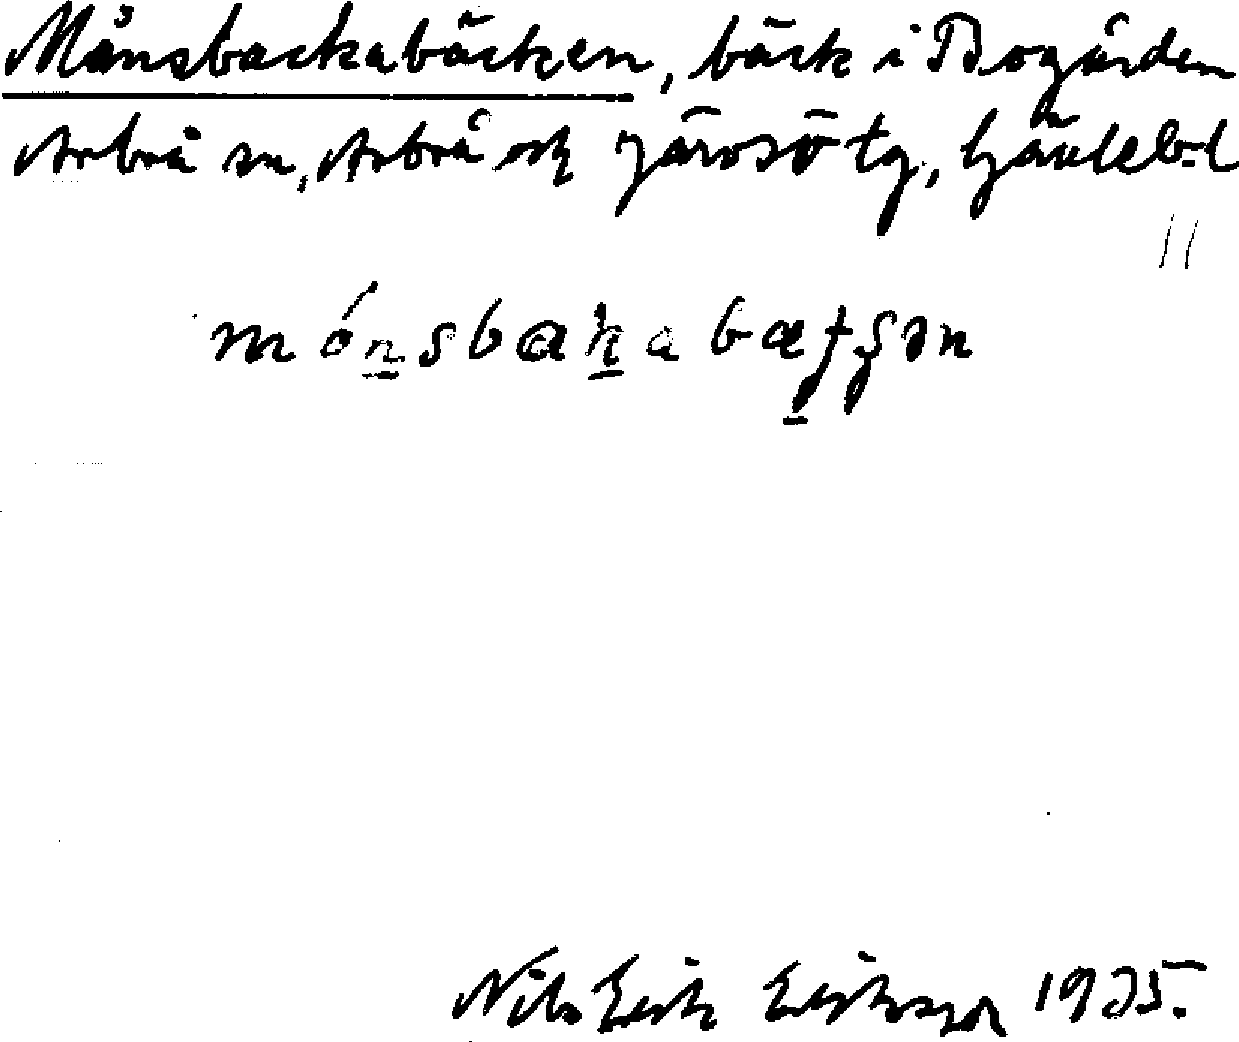 Månsbackabäcken, bäck i Bogården
Arbrå sn, Arbrå och Järvsö tg, Gävleb. l
mónsbaka bæƭʂən
Nils Erik Eriksson 1935.